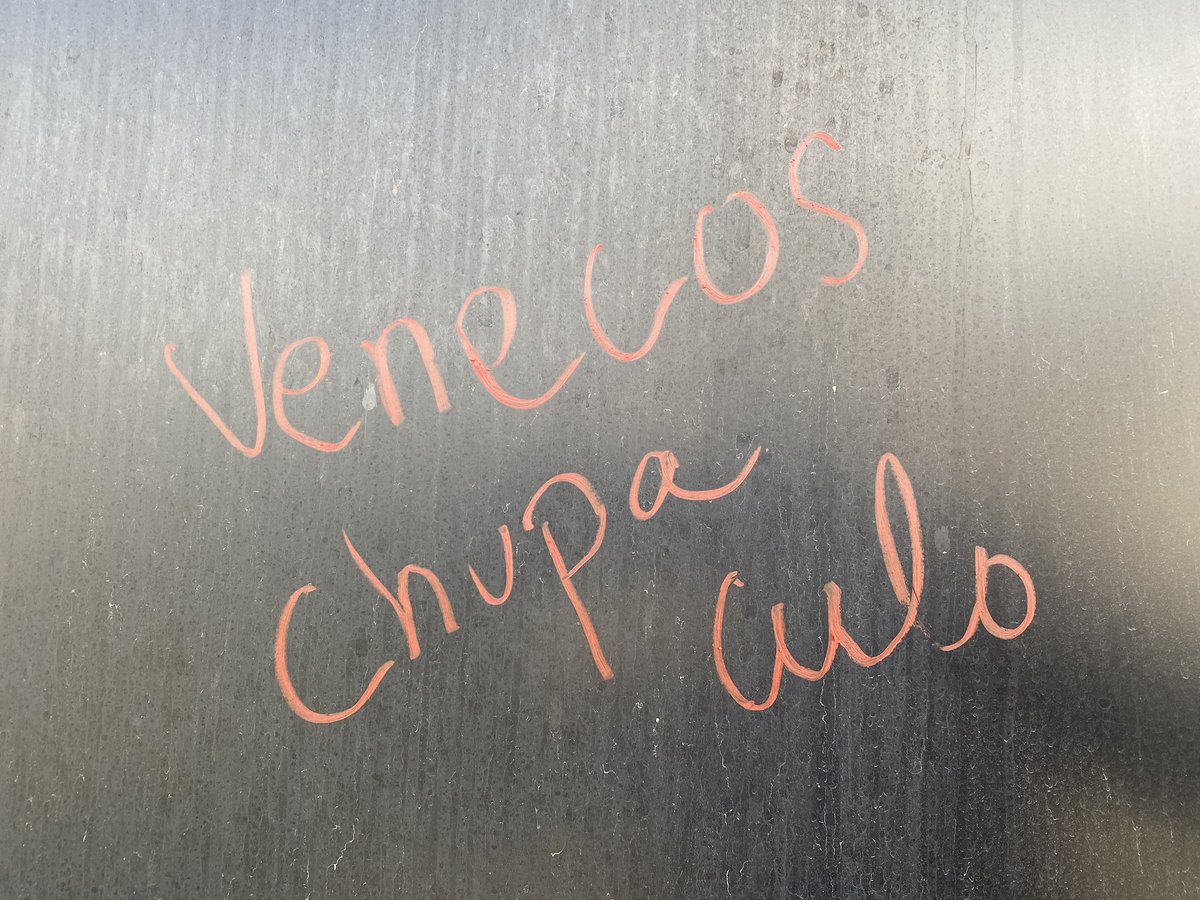 Venecos
chupa
culo